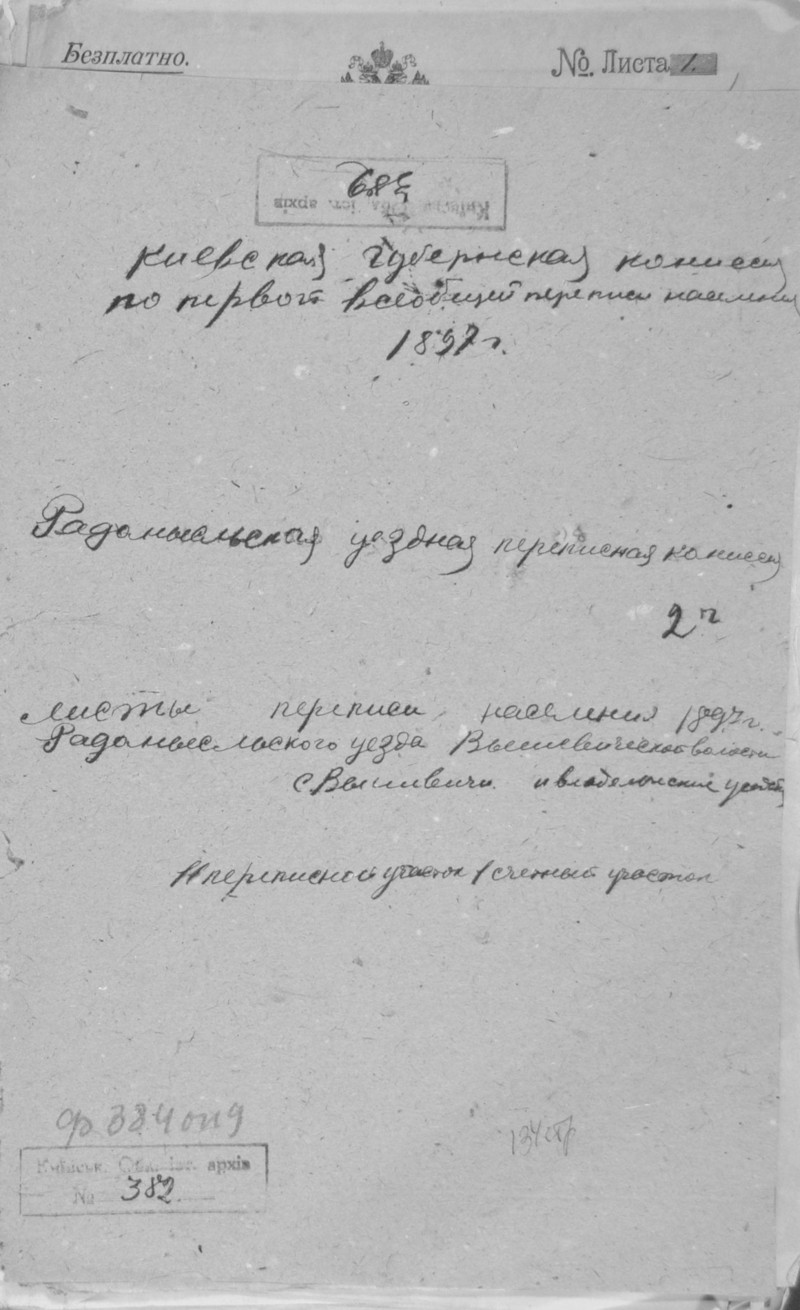 Безплатно.
№. Листа 1.
683
Київськ. Обл. іст. архів
Киевская Губернская комисия
по первой всеобщей переписи населения
1897 г.
Радомысльская уездная переписная комисия
2
Листы переписи населения 1897 г.
Радомысльского уезда Вышевичской волости
с Вышевичи и владельческие
11 переписной участок 1 счетный участок
ф 384 оп 9
134 стр
Київськ. Обл. іст. архів
№ 382